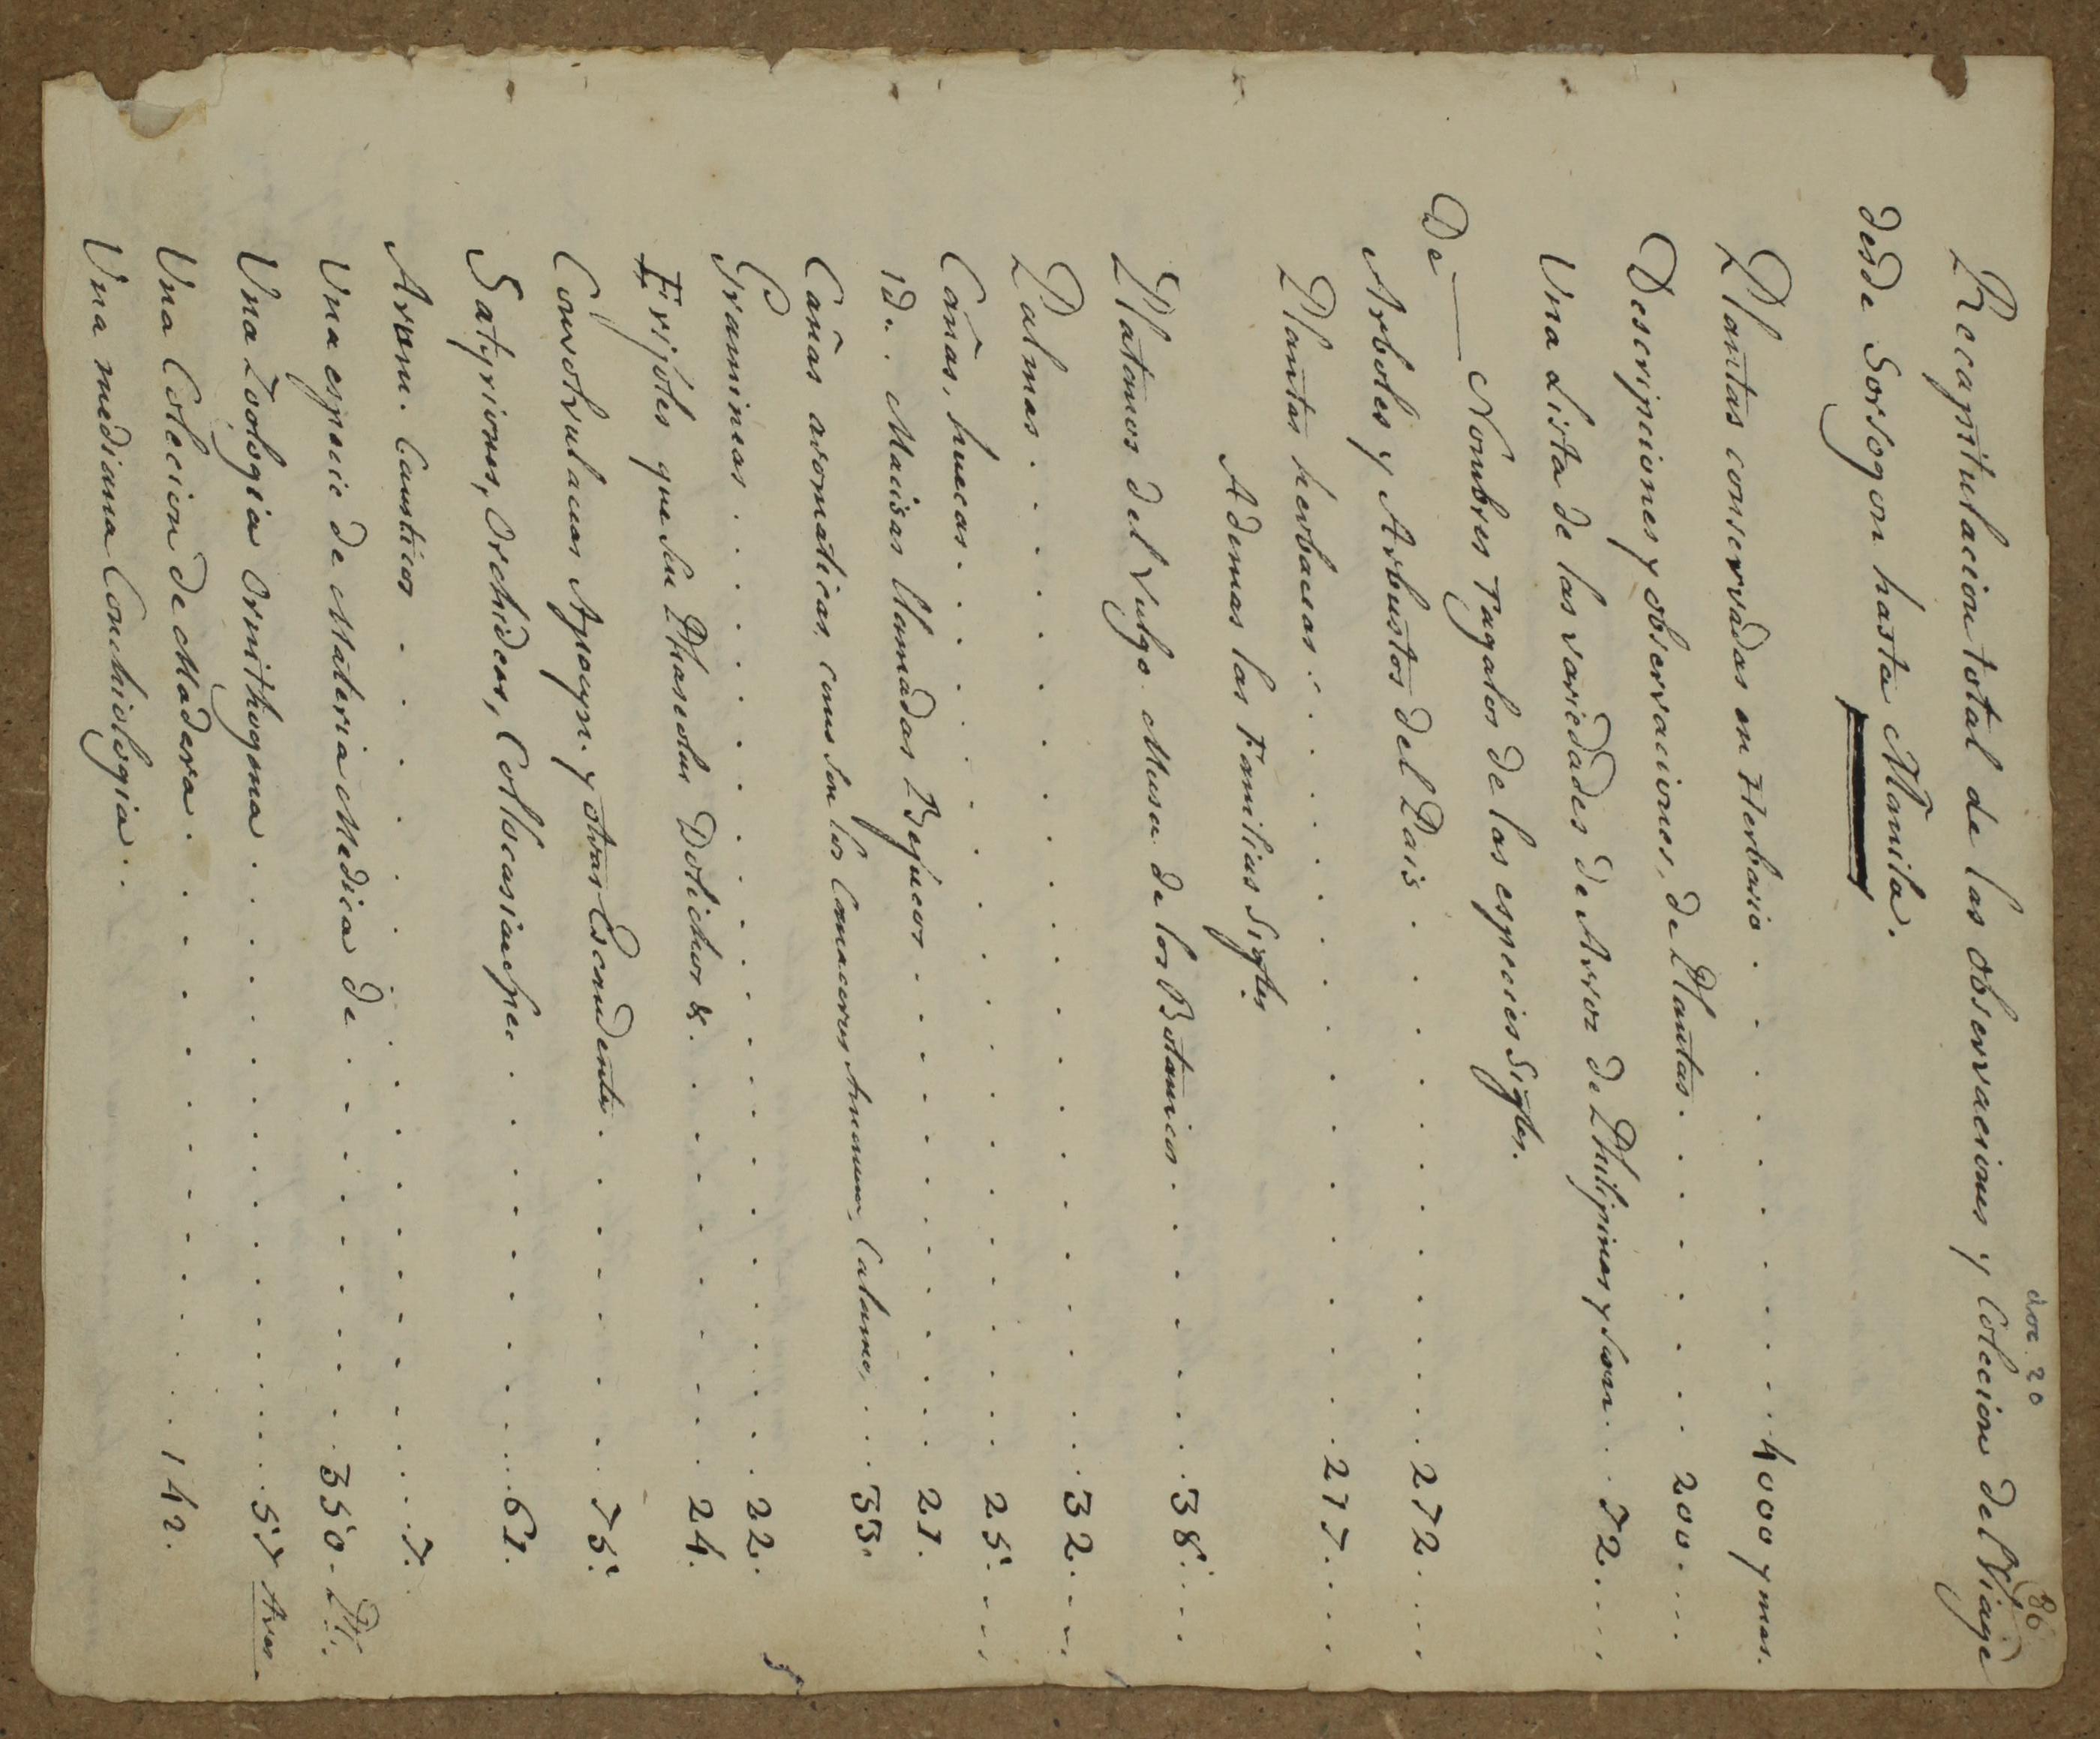 doc. 20
86
Reccapitulacion total de las observaciones y Coleccion del Viage
desde Sorsogon hasta Manila.
Plantas conservadas en Herbario . . . . 4000 y mas.
Descripciones y observaciones, de Plantas . . . . 200 . . .
Una Lista de las variedades de Arroz de Philipinas y son . . . 72 . . .
De — Nombres Tagalos de las especies Sigtes.
Arboles y Arbustos del Pais . . . . 272 . . .
Plantas herbaceas . . . . 277 . . .
Ademas las Familias Sigtes
Platanos del Vulgo Musa de los Botanicos . . . . 38 . . .
Palmas . . . . 32 . . .
Cañas, huecas . . . . 25 . . .
id. Macisas llamadas Bejucos . . . . 21.
Cañas aromaticas, como son los Cannacorus, Amomum, Calamo, . . . 33.
Gramineas . . . . 22.
Frijoles que son Phaseolus Dolichos & . . . . 24.
Convolvulaceas Apocyn. y otras Escandente . . . . 75.
Satyriones, Orchideas, Collocasiae . . . . 61.
Arom. Causticos . . . . 7.
Una especie de Materia Medica de . . . . 350. Pl.
Una Zoologia Ornithogma . . . . 57 Aves.
Una Colecion de Madera . . . . 142.
Una mediana Conchiologia . .